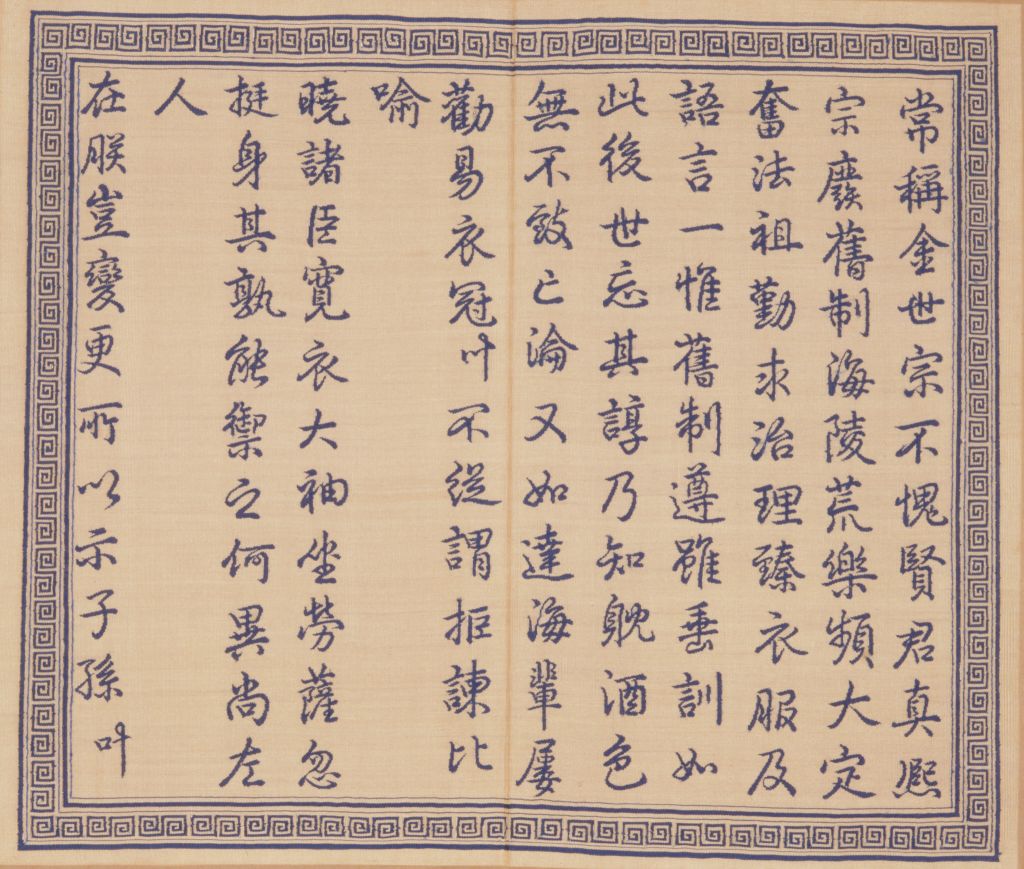 常稱金世宗不愧賢君真熙
宗廢舊制海陵荒樂頻大定
奮法祖勤求治理臻衣服及
語言一惟舊制遵雖垂訓如
此後世忘其諄乃知躭酒色
無不致亡淪又如達海輩屢
勸易衣冠叶不從謂拒諫比
喻
曉諸臣寬衣大袖坐勞薩忽
挺身其孰能禦之何異尚左
人
在朕豈變更所以示子孫叶